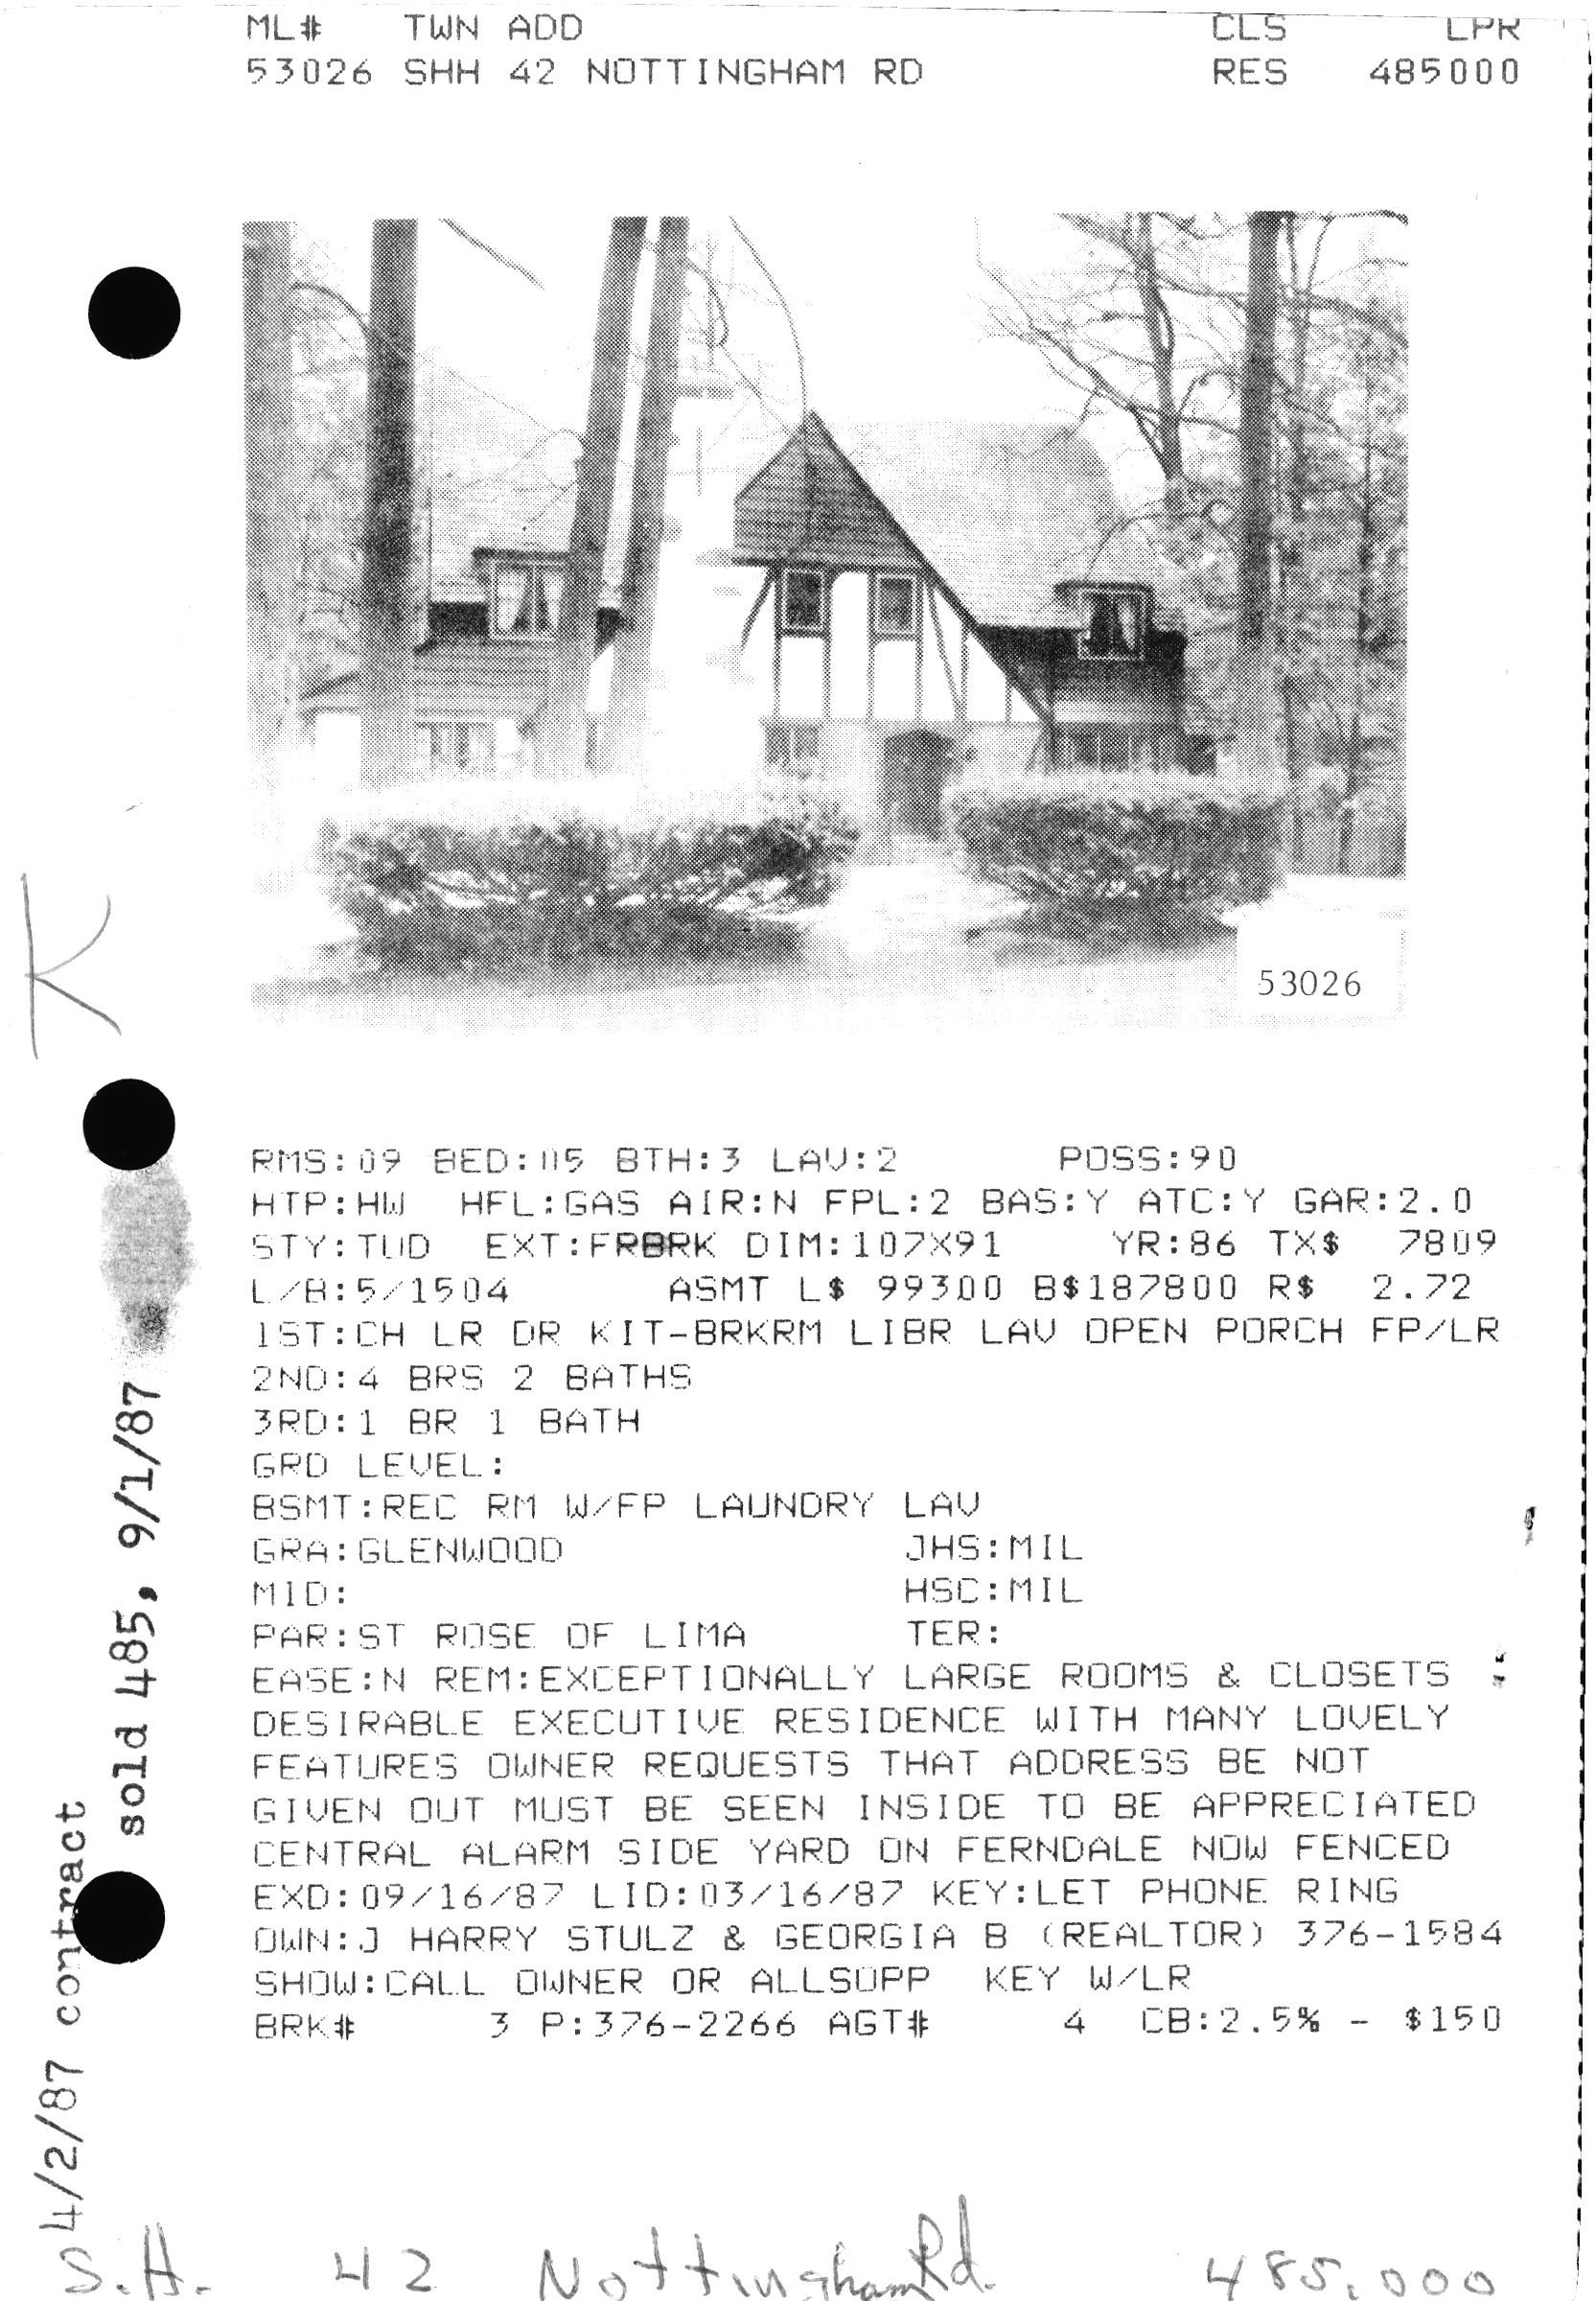 ML# TWN ADD CLS LPR
53026 SHH 42 NOTTINGHAM RD RES 485000
53026
K
RMS:09 BED:05 BTH:3 LAV:2 POSS:90
HTP:HW HFL:GAS AIR:N FPL:2 BAS:Y ATC:Y GAR:2.0
STY:TUD EXT:FRBRK DIM:107X91 YR:86 TX$ 7809
L/B:5/1504 ASMT L$ 99300 B$187800 R$ 2.72
1ST:CH LR DR KIT-BRKRM LIBR LAV OPEN PORCH FP/LR
2ND:4 BRS 2 BATHS
3RD:1 BR 1 BATH
GRD LEVEL:
BSMT:REC RM W/FP LAUNDRY LAV
GRA:GLENWOOD JHS:MIL
MID: HSC:MIL
PAR:ST ROSE OF LIMA TER:
EASE:N REM:EXCEPTIONALLY LARGE ROOMS & CLOSETS
DESIRABLE EXECUTIVE RESIDENCE WITH MANY LOVELY
FEATURES OWNER REQUESTS THAT ADDRESS BE NOT
GIVEN OUT MUST BE SEEN INSIDE TO BE APPRECIATED
CENTRAL ALARM SIDE YARD ON FERNDALE NOW FENCED
EXD:09/16/87 LID:03/16/87 KEY:LET PHONE RING
OWN:J HARRY STULZ & GEORGIA B (REALTOR) 376-1584
SHOW:CALL OWNER OR ALLSOPP KEY W/LR
BRK# 3 P:376-2266 AGT# 4 CB:2.5% - $150
4/2/87 contract
sold 485, 9/1/87
S.H. 42 Nottingham Rd. 485,000